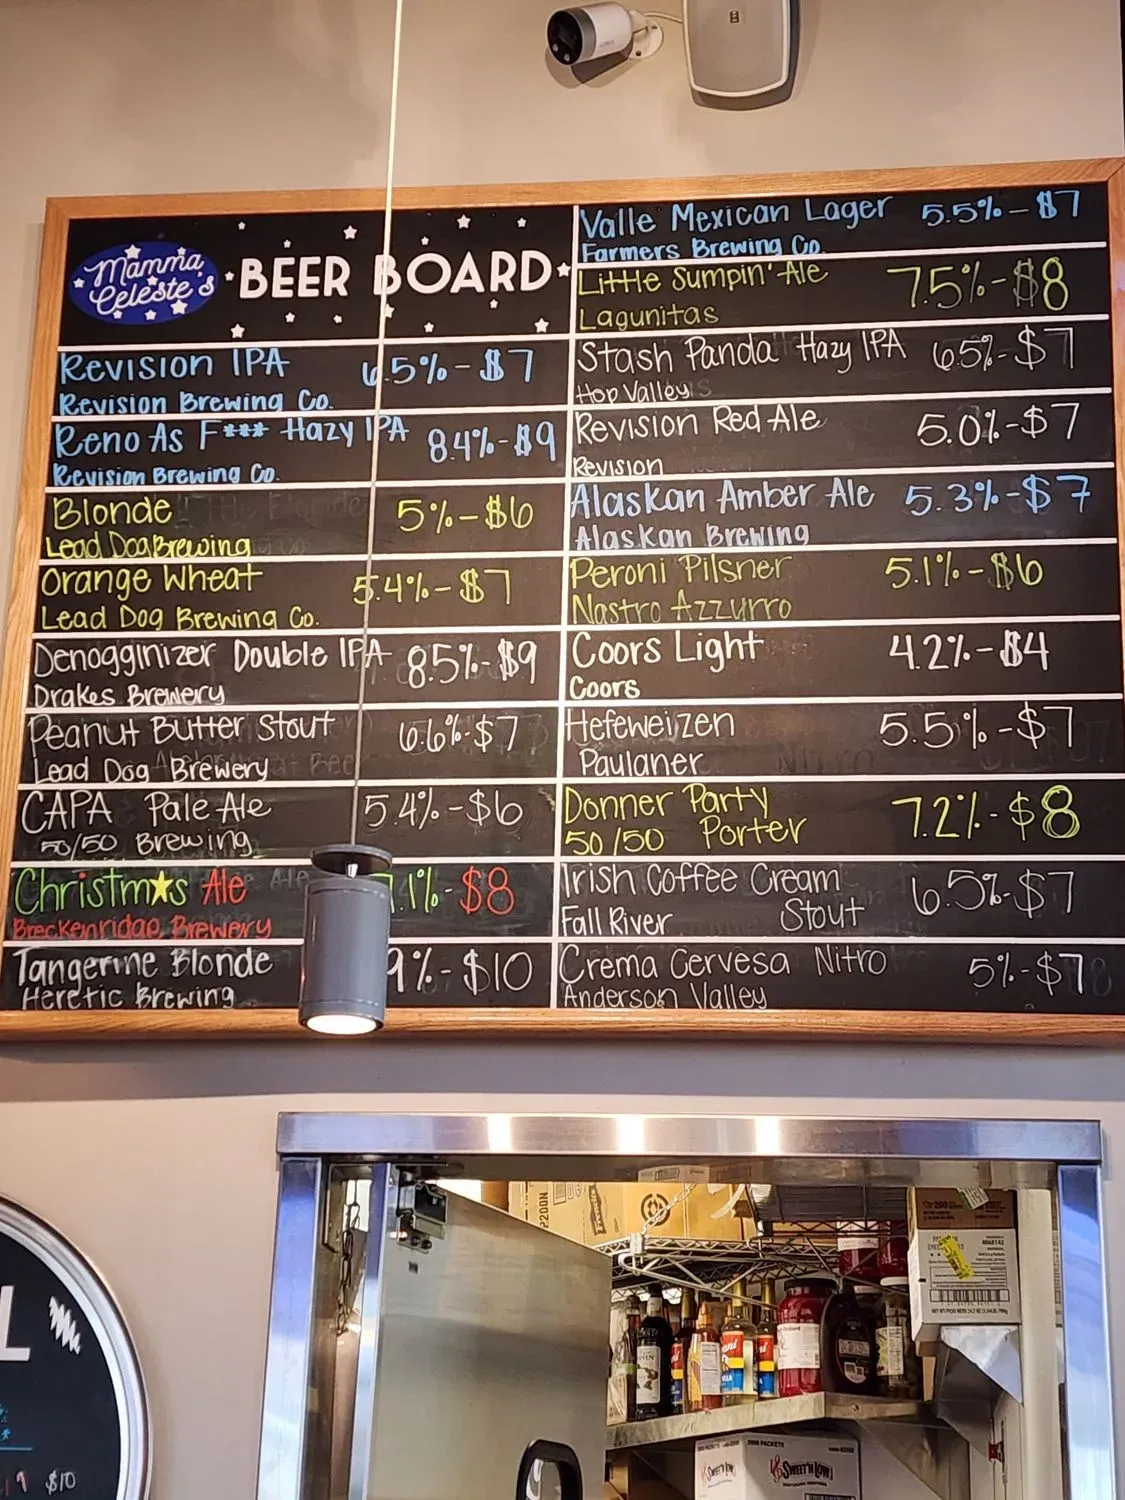 Mamma
Celeste's
BEER BOARD
Revision IPA 6.5% - $7
Revision Brewing Co.
Reno As F*** Hazy IPA 8.4% - $9
Revision Brewing Co.
Blonde 5% - $6
Lead Dog Brewing
Orange Wheat 5.4% - $7
Lead Dog Brewing Co.
Denogginizer Double IPA 8.5% - $9
Drakes Brewery
Peanut Butter Stout 6.6% - $7
Lead Dog Brewery
CAPA Pale Ale 5.4% - $6
50/50 Brewing
Christmas Ale 7.1% - $8
Breckenridge Brewery
Tangerine Blonde 9% - $10
Heretic Brewing
Valle Mexican Lager 5.5% - $7
Farmers Brewing Co.
Little Sumpin' Ale 7.5% - $8
Lagunitas
Stash Panda Hazy IPA 6.5% - $7
Hop Valley
Revision Red Ale 5.0% - $7
Revision
Alaskan Amber Ale 5.3% - $7
Alaskan Brewing
Peroni Pilsner 5.1% - $6
Nastro Azzurro
Coors Light 4.2% - $4
Coors
Hefeweizen 5.5% - $7
Paulaner
Donner Party 7.2% - $8
50/50 Porter
Irish Coffee Cream 6.5% - $7
Fall River Stout
Crema Cervesa Nitro 5% - $7
Anderson Valley
L
$10
Sweet'N Low
Sweet'N Low